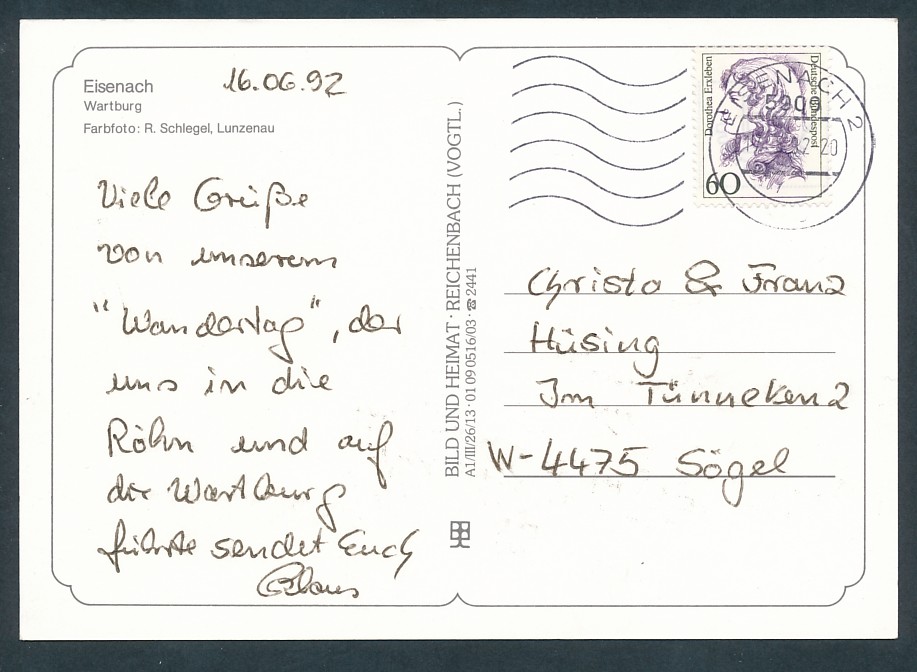 Eisenach
Wartburg
Farbfoto: R. Schlegel, Lunzenau
16.06.92
Viele Grüße
von unserem
"Wandertag", der
uns in die
Röhn und auf
die Wartburg
führte sendet Euch
Claus
BILD UND HEIMAT · REICHENBACH (VOGTL.)
A1/III/26/13 · 01 09 0516/03 · ☎ 2441
Dorothea Erxleben
Deutsche Bundespost
60
EISENACH 2
5900
Christa & Franz
Hüsing
Im Tünneken 2
W-4475 Sögel